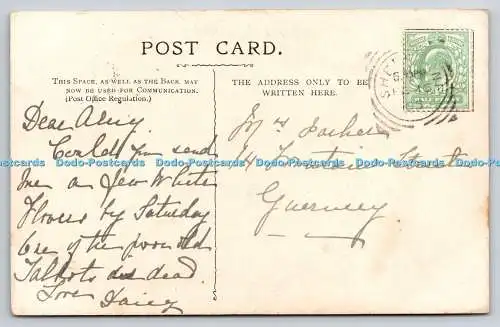 POST CARD.
THIS SPACE, AS WELL AS THE BACK, MAY
NOW BE USED FOR COMMUNICATION.
(Post Office Regulation.)
THE ADDRESS ONLY TO BE
WRITTEN HERE.
Dear
Could you send
me a few White
Flowers by Saturday
One of the poor old
Talbots is dead.
Love
Daisy
Street
Guernsey
Dodo-Postcards Dodo-Postcards Dodo-Postcards Dodo-Postcards